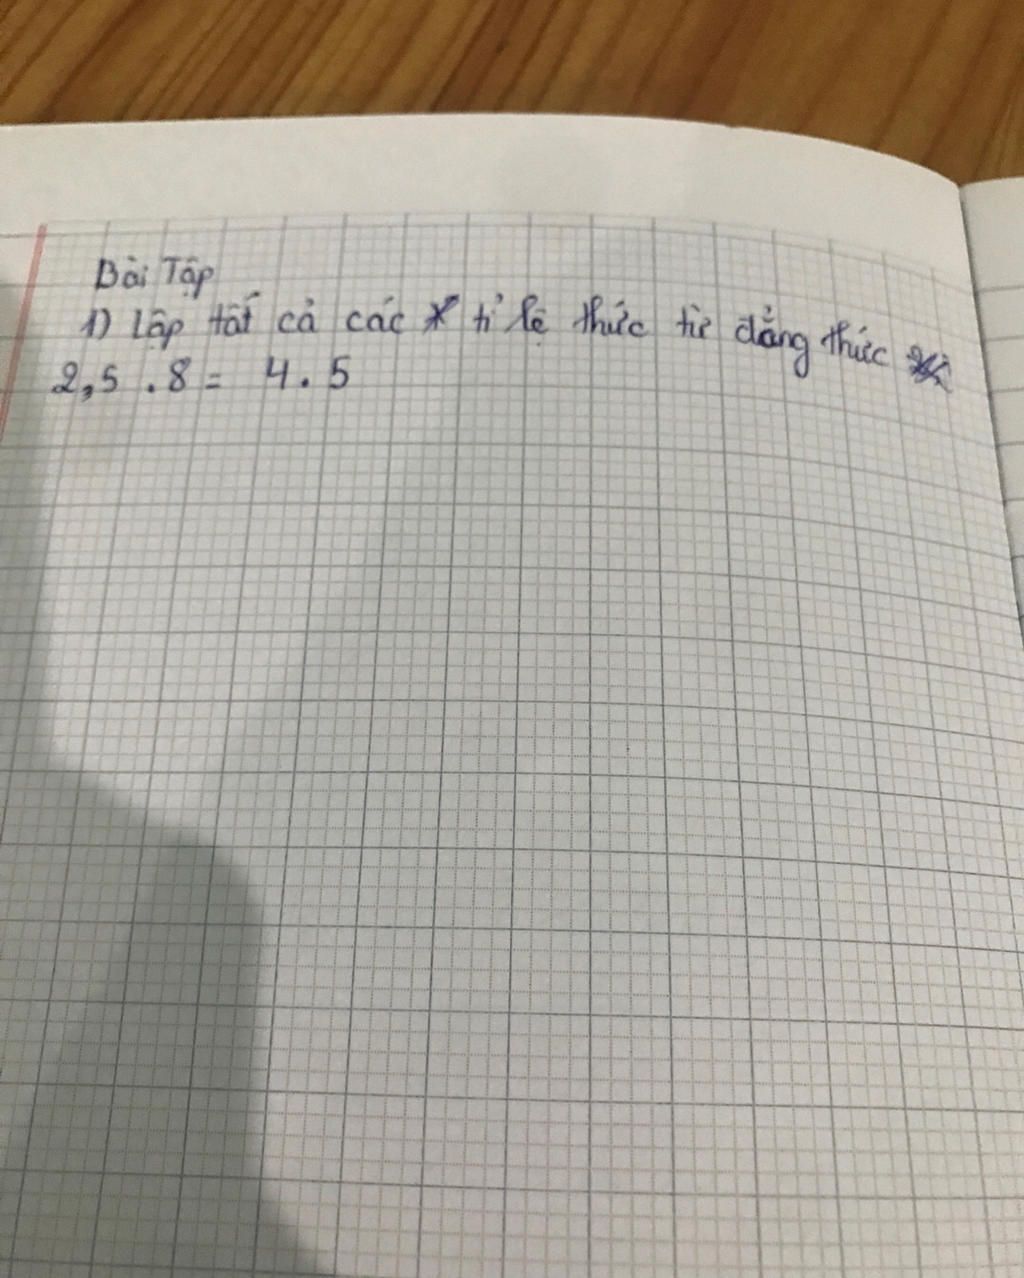 Bài Tập
1) Lập tất cả các tỉ lệ thức từ đẳng thức
2,5 . 8 = 4 . 5